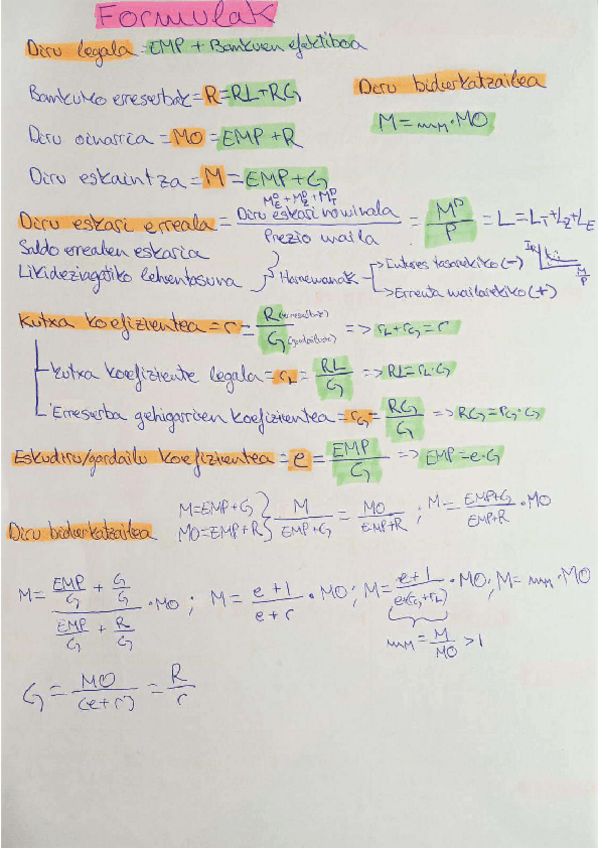 Formulak
Diru legala = EMP + Bankuen efektiboa
Bankuko erreserbak = R = RL + RG
Diru bidierkatzailea
M = mm · MO
Diru oinarria = MO = EMP + R
Diru eskaintza = M = EMP + G
Diru eskari erreala = Diru eskari nominala / Prezio maila = M^D / P = L = L_T + L_Z + L_E
Saldo errealen eskaria
Likideziagatiko lehentasuna
→ Interes tasarekiko (-)
→ Errenta mailarekiko (+)
M/P
Kutxa koefizientea = r = R (erreserbak) / G (gordailuak) => r_L + r_G = r
Kutxa koefiziente legala = r_L = RL / G => RL = r_L · G
Erreserba gehigarrien koefizientea = r_G = RG / G => RG = r_G · G
Eskudiru/gordailu koefizientea = e = EMP / G => EMP = e · G
Diru bidierkatzailea
M = EMP + G
MO = EMP + R
M / EMP + G = MO / EMP + R ; M = EMP + G / EMP + R · MO
M = (EMP/G + G/G) / (EMP/G + R/G) · MO ; M = e + 1 / e + r · MO ; M = e + 1 / e + (r_G + r_L) · MO ; M = mm · MO
mm = M / MO > 1
G = MO / (e + r) = R / r